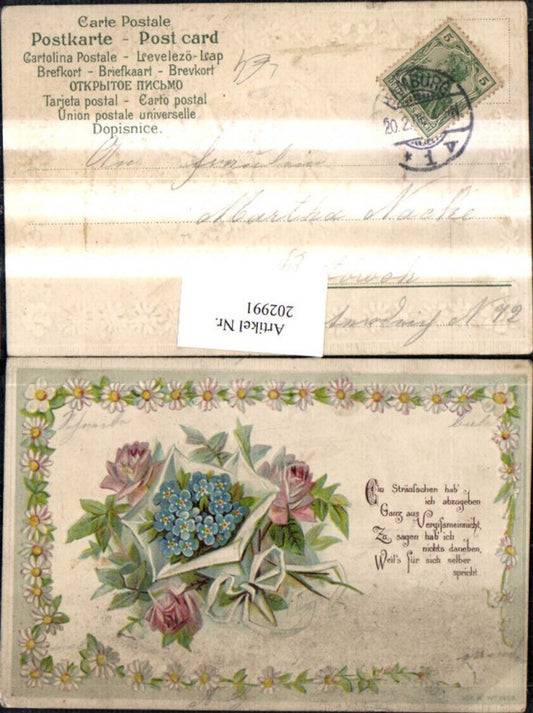 Carte Postale
Postkarte - Post card
Cartolina Postale - Levelező-Lap
Brefkort - Briefkaart - Brevkort
ОТКРЫТОЕ ПИСЬМО
Tarjeta postal - Carto postal
Union postale universelle
Dopisnice.
5
5
BURG
20.2.
* 1 A
An Fräulein
Martha
N 92
Artikel Nr.
202991
Ein Sträußchen hab'
ich abzugeben
Ganz aus
Vergißmeinnicht,
Zu sagen hab' ich
nichts daneben,
Weil's für sich selber
spricht.